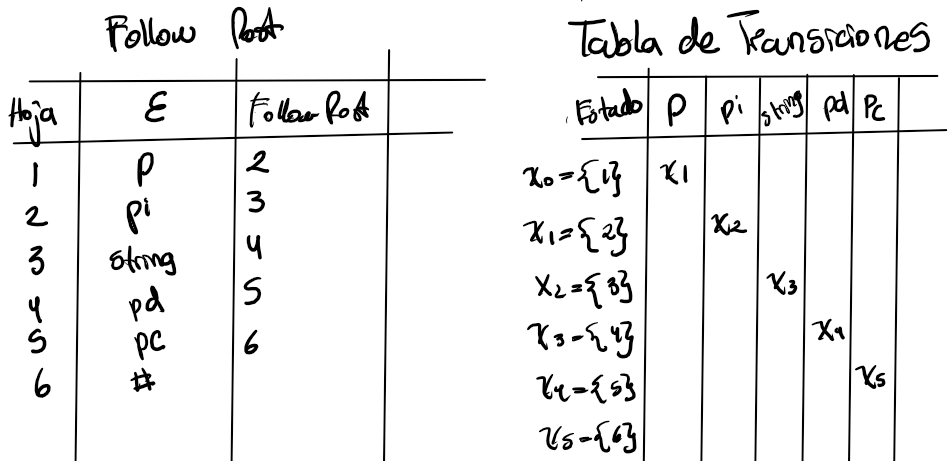 Follow Post
Hoja ε Follow Post
1 p 2
2 pi 3
3 string 4
4 pd 5
5 pc 6
6 #
Tabla de Transiciones
Estado P pi string pd Pc
X₀={1} X₁
X₁={2} X₂
X₂={3} X₃
X₃={4} X₄
X₄={5} X₅
X₅={6}